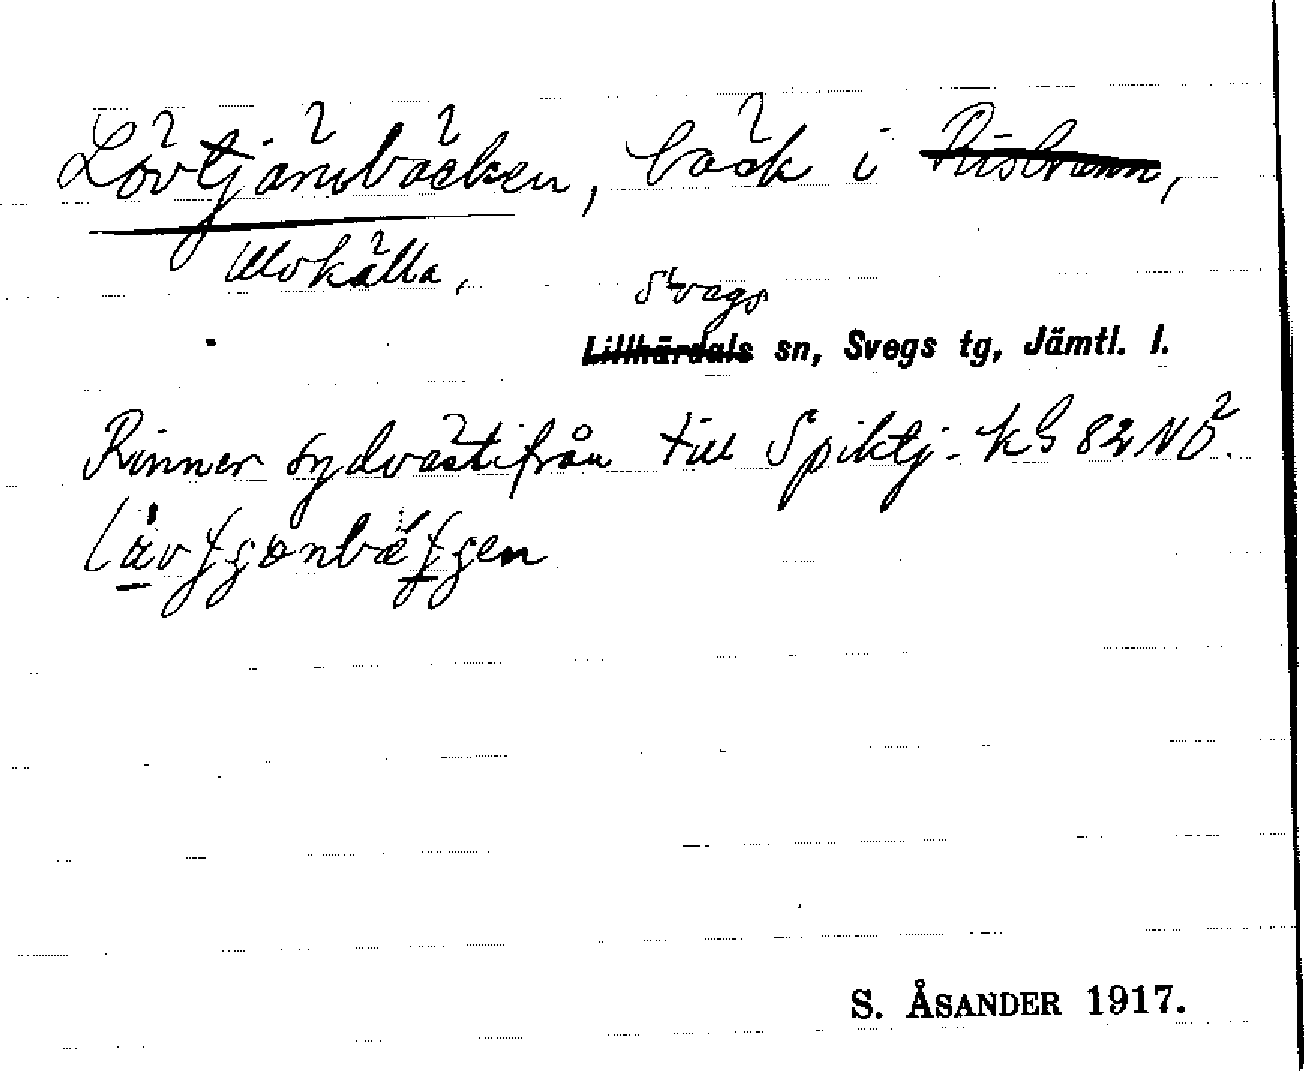 Lövtjärnbäcken, bäck i Risbrunn,
Ulvkälla,
Svegs
Lillhärdals sn, Svegs tg, Jämtl. l.
Rinner sydvästifrån till Spiktj. kG 82 NÖ.
S. ÅSANDER 1917.